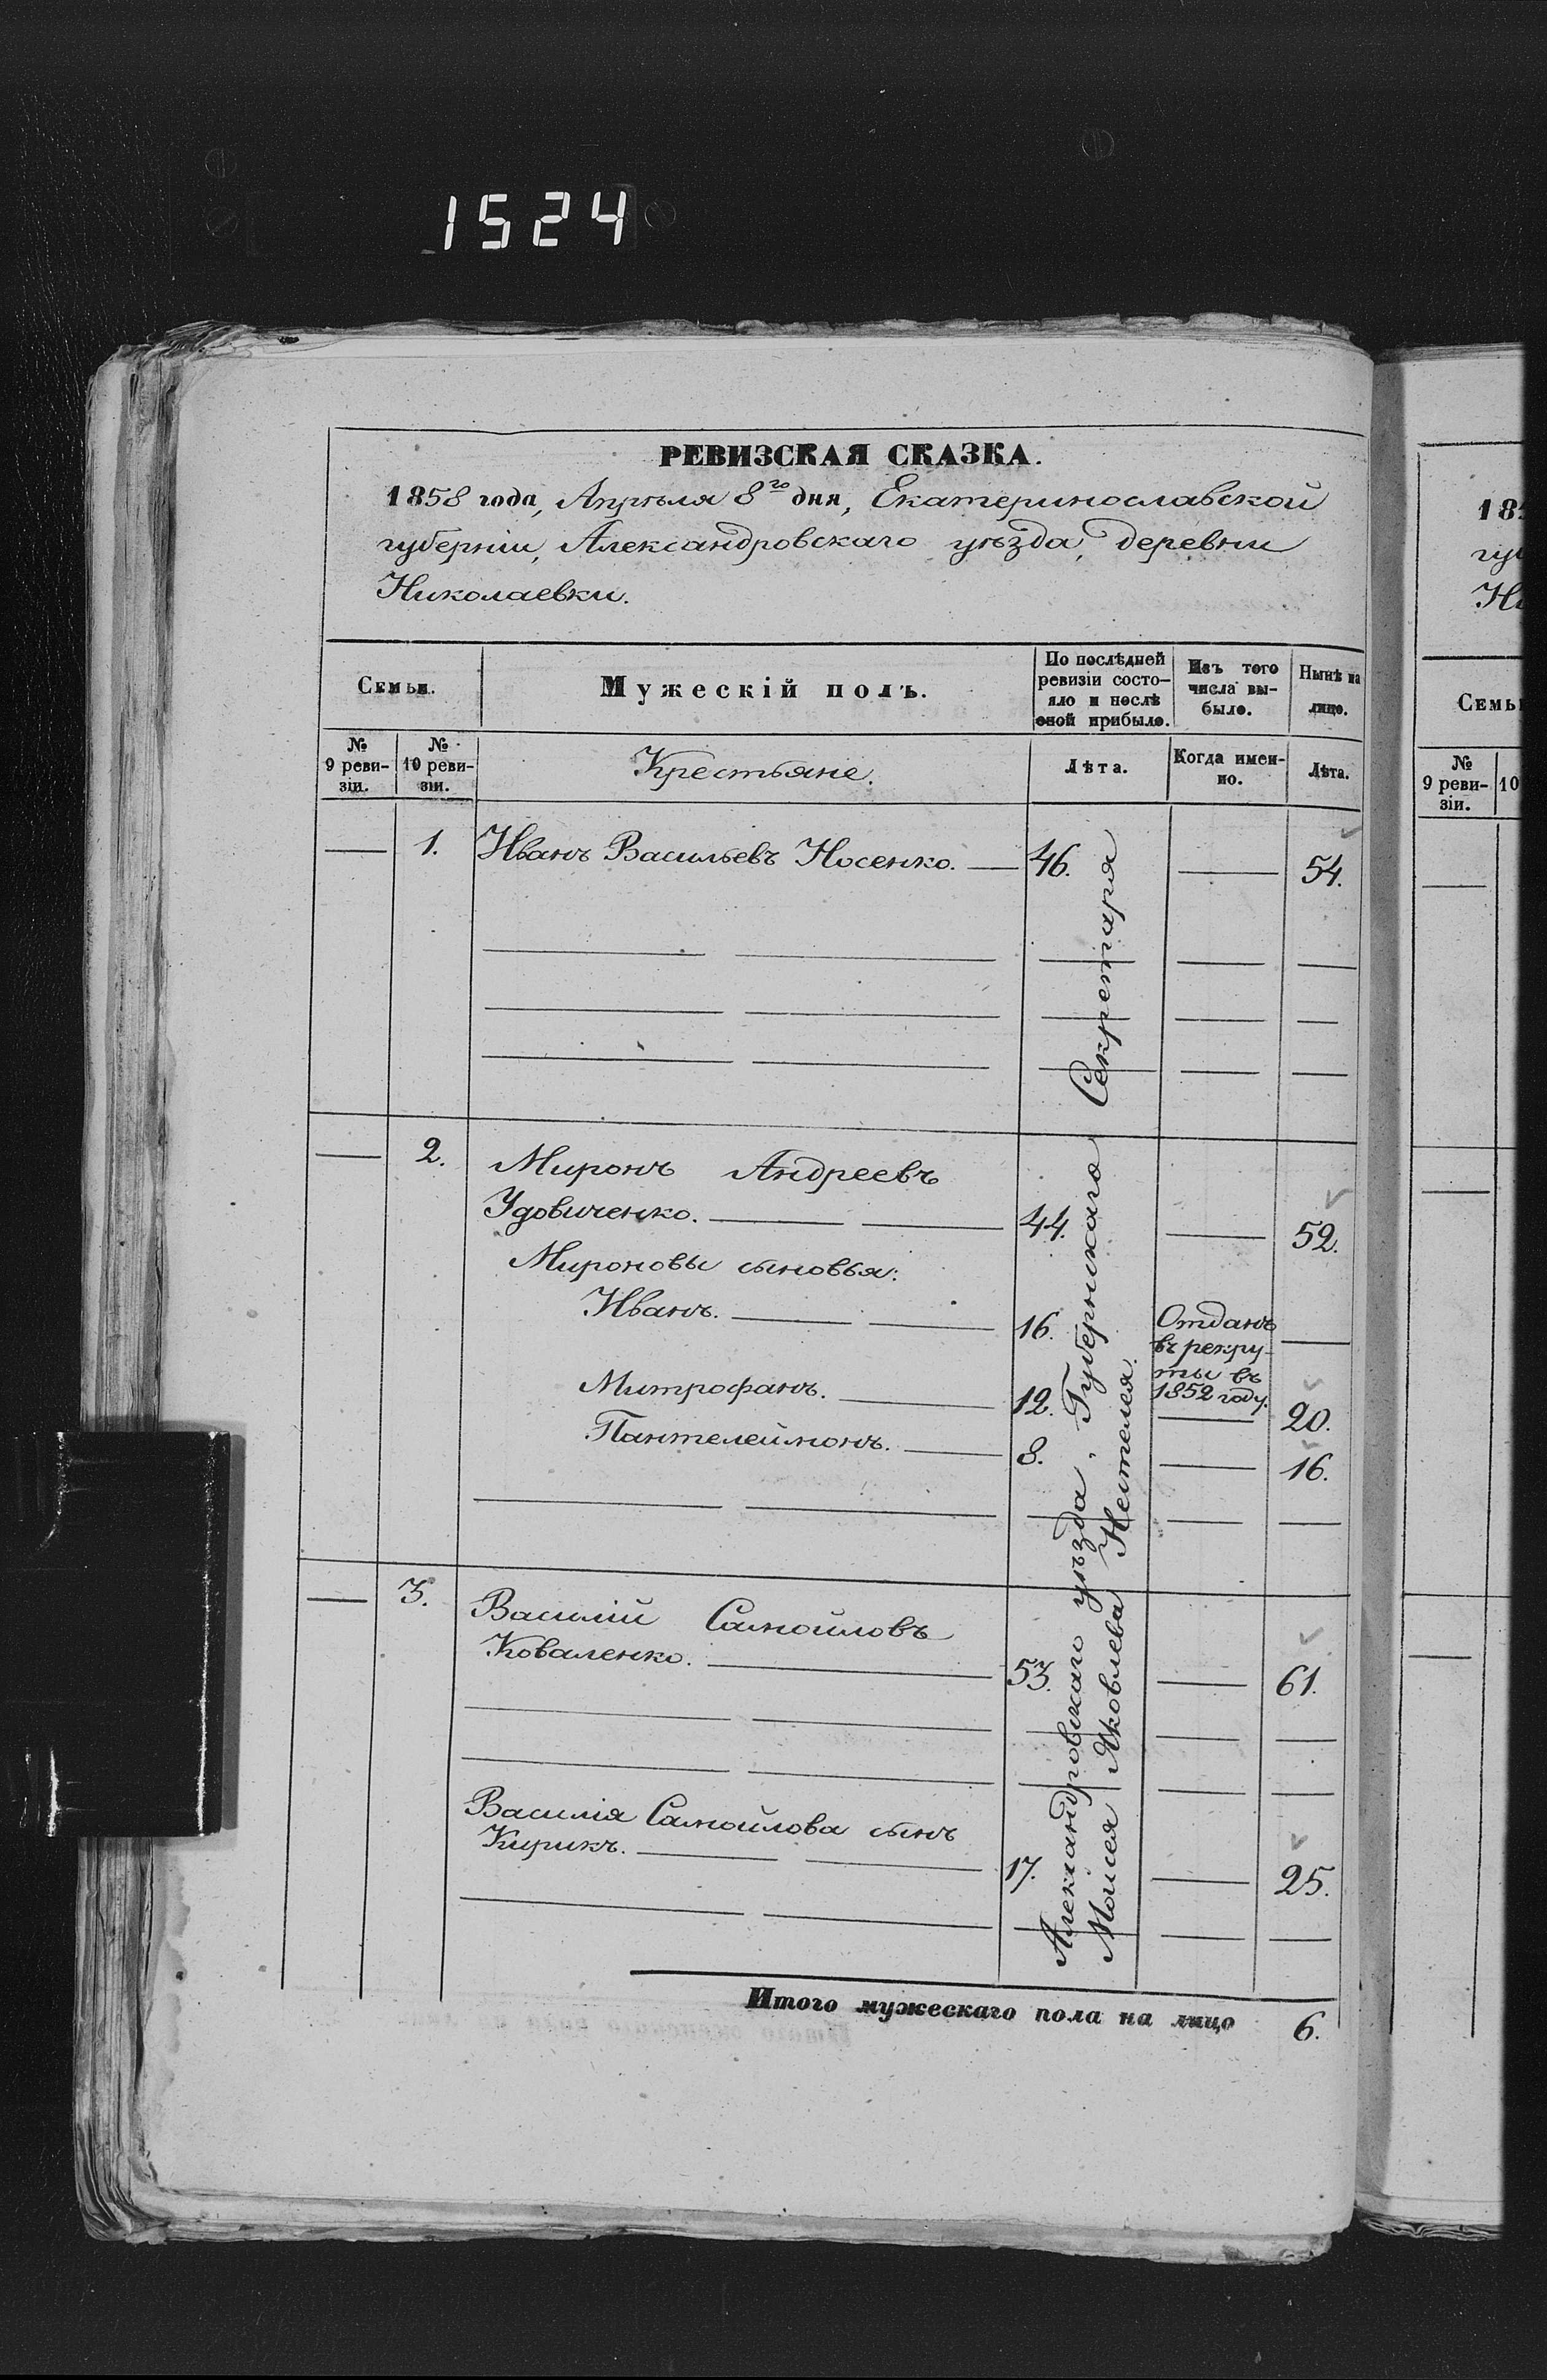 1524
РЕВИЗСКАЯ СКАЗКА.
1858 года, Апрѣля 8го дня, Екатеринославской
губерніи, Александровскаго уѣзда, деревни
Николаевки.
Семьи.
Мужескій полъ.
По послѣдней
ревизіи состо-
яло и послѣ
оной прибыло.
Изъ того
числа вы-
было.
Нынѣ на
лицо.
№
9 реви-
зіи.
№
10 реви-
зіи.
Крестьяне.
Лѣта.
Когда имен-
но.
Лѣта.
1. Иванъ Васильевъ Носенко. 46. 54.
2. Миронъ Андреевъ
Удовиченко. 44. 52.
Мироновы сыновья:
Иванъ. 16. Отданъ
въ рекру-
ты въ
1852 году.
Митрофанъ. 12. 20.
Пантелеймонъ. 8. 16.
3. Василій Самойловъ
Коваленко. 53. 61.
Василія Самойлова сынъ
Кирикъ. 17. 25.
Александровскаго уѣзда, Губернскаго Секретаря
Моисея Яковлева Нестелея.
Итого мужескаго пола на лицо 6.
185
гу
Ни
Семьи
№
9 реви-
зіи.
10